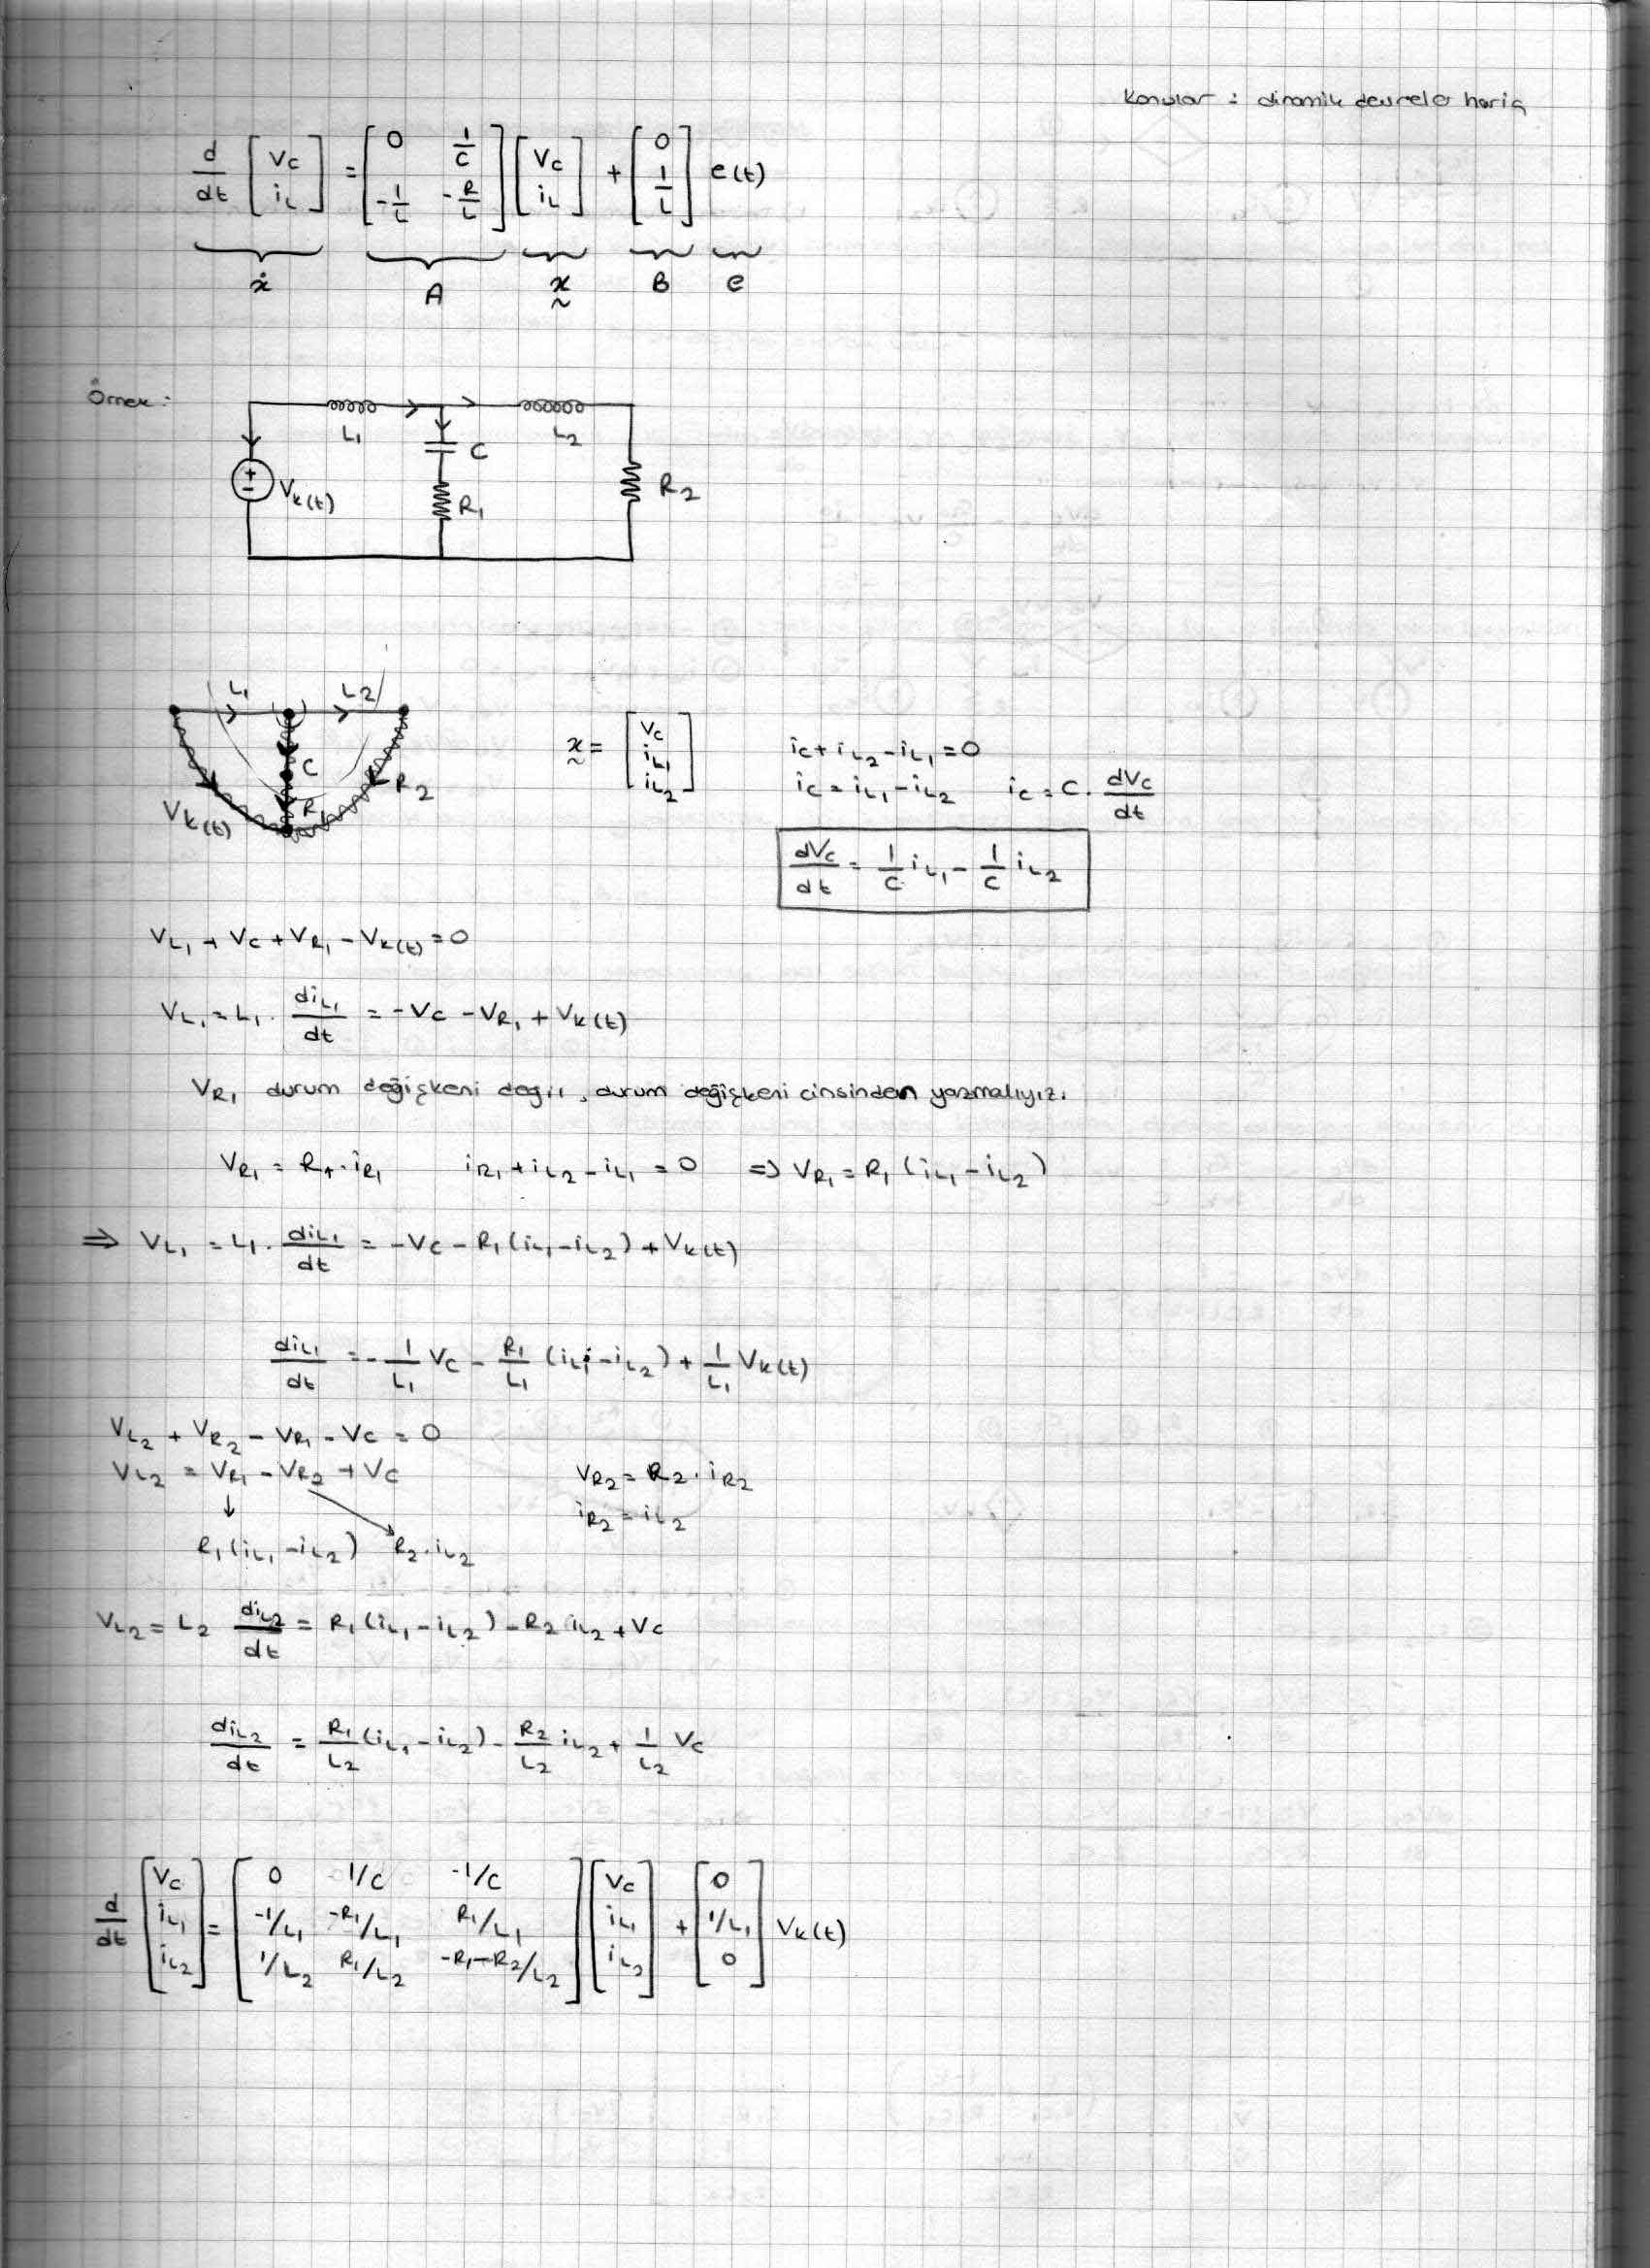 Konular : dinamik devreler hariç
d/dt [Vc; iL] = [0 1/C; -1/L -R/L] [Vc; iL] + [0; 1/L] e(t)
ẋ A x B e
Örnek :
L1 L2
C
Vk(t) R1 R2
L1 L2
C
Vk(t) R1 R2
x = [Vc; iL1; iL2]
ic + iL2 - iL1 = 0
ic = iL1 - iL2 ic = C . dVc/dt
dVc/dt = 1/C iL1 - 1/C iL2
VL1 + Vc + VR1 - Vk(t) = 0
VL1 = L1 . diL1/dt = -Vc - VR1 + Vk(t)
VR1 durum değişkeni değil, durum değişkeni cinsinden yazmalıyız.
VR1 = R1 . iR1 iR1 + iL2 - iL1 = 0 => VR1 = R1 (iL1 - iL2)
=> VL1 = L1 . diL1/dt = -Vc - R1 (iL1 - iL2) + Vk(t)
diL1/dt = -1/L1 Vc - R1/L1 (iL1 - iL2) + 1/L1 Vk(t)
VL2 + VR2 - VR1 - Vc = 0
VL2 = VR1 - VR2 + Vc
VR2 = R2 . iR2
iR2 = iL2
R1 (iL1 - iL2) R2 . iL2
VL2 = L2 diL2/dt = R1 (iL1 - iL2) - R2 iL2 + Vc
diL2/dt = R1/L2 (iL1 - iL2) - R2/L2 iL2 + 1/L2 Vc
d/dt [Vc; iL1; iL2] = [0 1/C -1/C; -1/L1 -R1/L1 R1/L1; 1/L2 R1/L2 -R1-R2/L2] [Vc; iL1; iL2] + [0; 1/L1; 0] Vk(t)